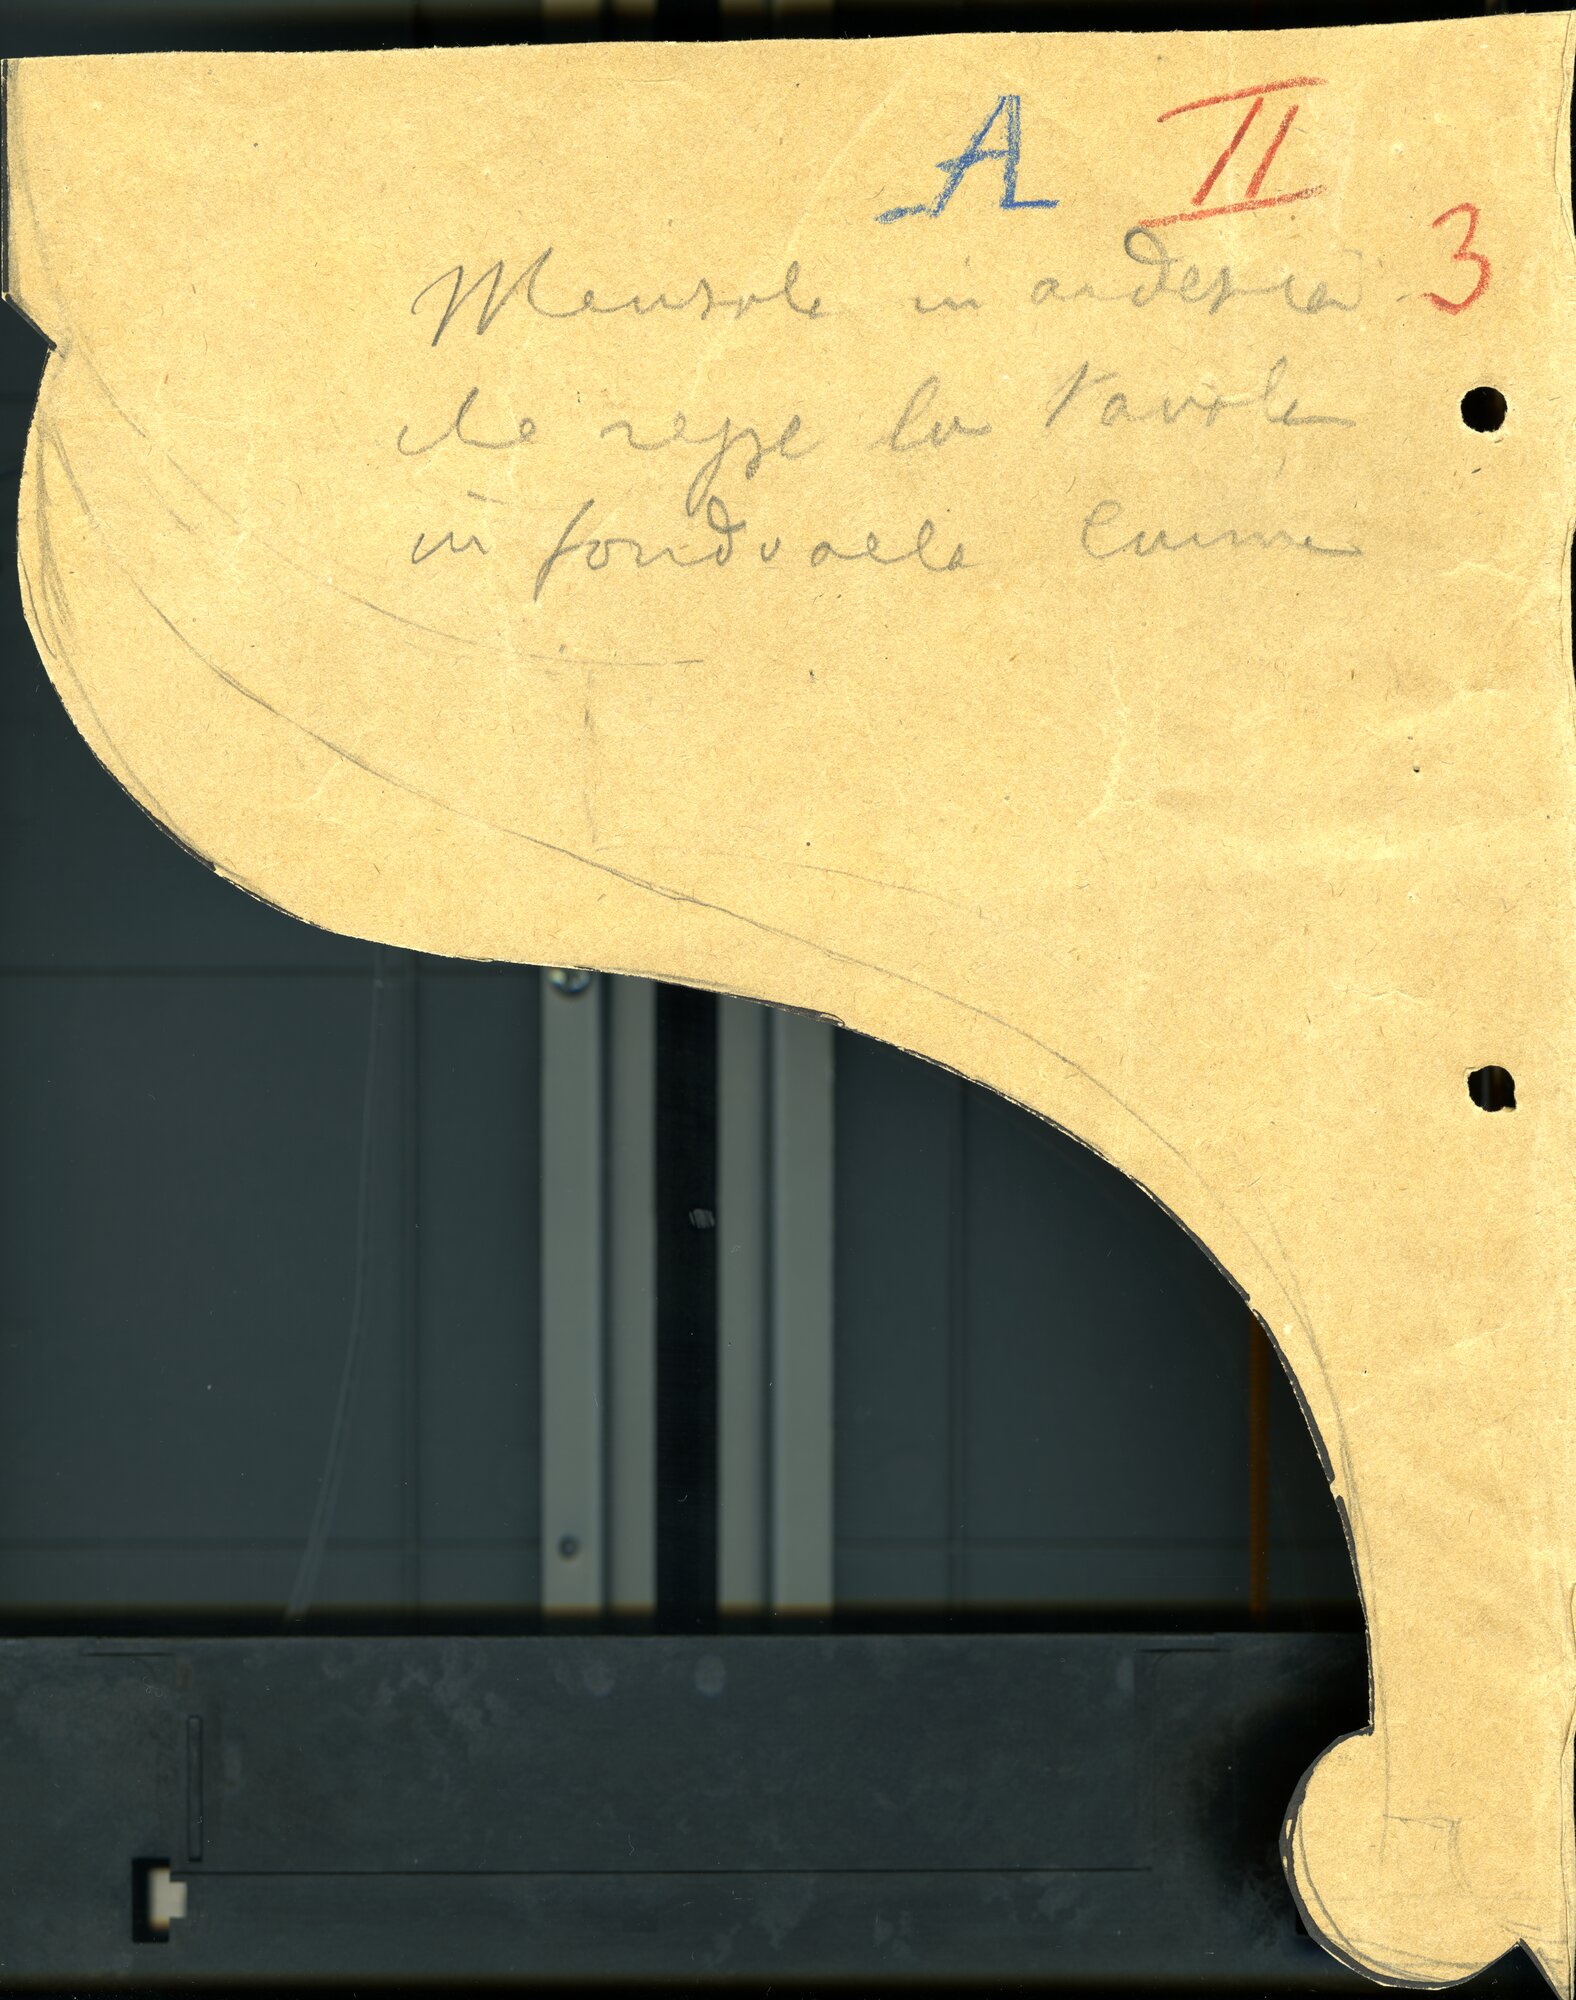 A II
3
Mensole in ardesia
che regge la tavola
in fondo alla